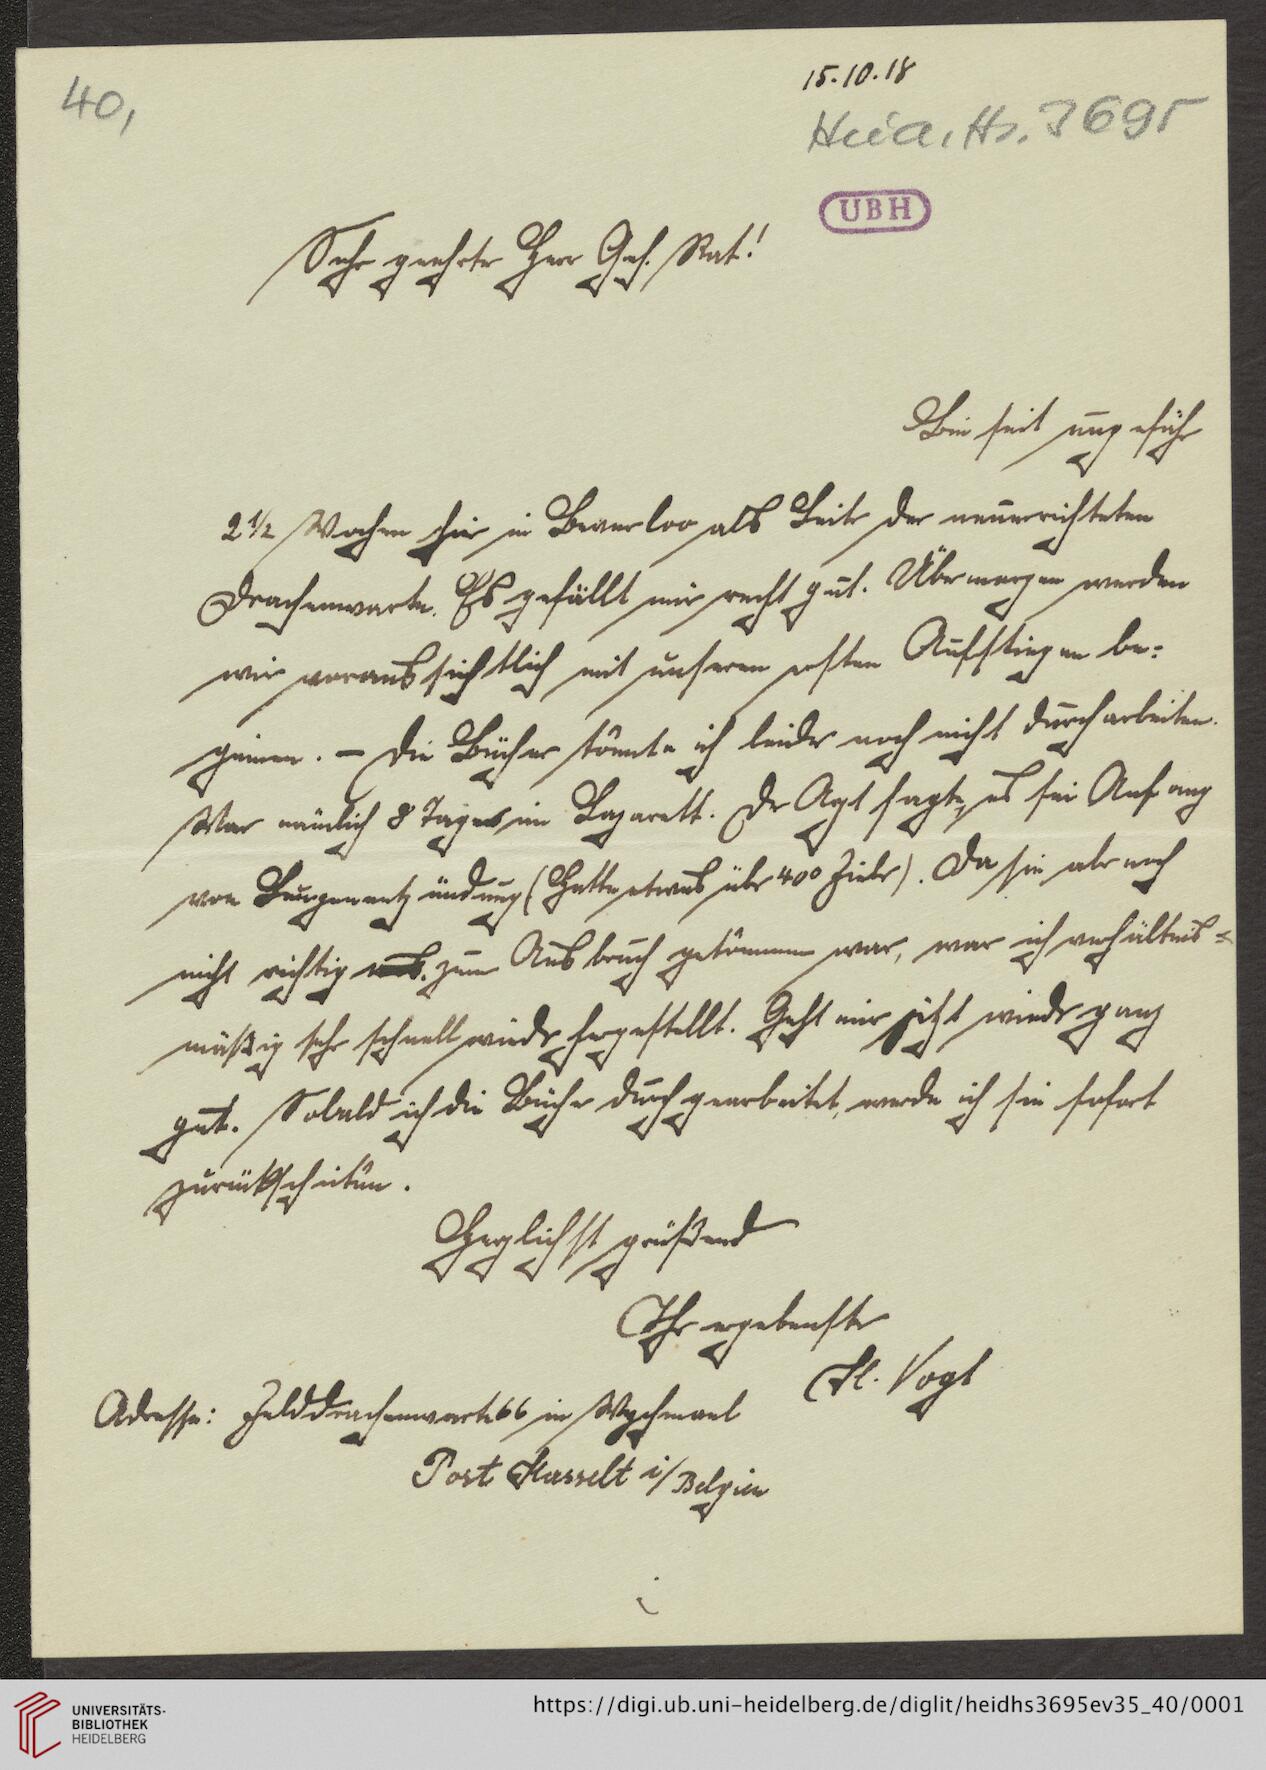 15.10.18
40,
Heid. Hs. 3695
UBH
Sehr geehrter Herr Geh. Rat!
Bin seit ungefähr
2 1/2 Wochen hier in Beverloo als Leiter der neuerrichteten
Drachenwarte. Es gefällt mir recht gut. Übermorgen werden
wir voraussichtlich mit unseren ersten Aufstiegen be-
ginnen. – Die Bücher konnte ich leider noch nicht durcharbeiten.
War nämlich 8 Tage im Lazarett. Der Arzt sagte, es sei Anfang
von Lungenentzündung (Hatte etwas über 40° Fieber). Da sie aber noch
nicht richtig zum Ausbruch gekommen war, war ich verhältnis-
mäßig sehr schnell wieder hergestellt. Geht mir jetzt wieder ganz
gut. Sobald ich die Bücher durchgearbeitet, werde ich sie sofort
zurückschicken.
Herzlichst grüßend
Ihr ergebenster
H. Vogt
Adresse: Felddrachenwarte 66 in Wychmael
Post Hasselt i/Belgien
UNIVERSITÄTS-
BIBLIOTHEK
HEIDELBERG
https://digi.ub.uni-heidelberg.de/diglit/heidhs3695ev35_40/0001